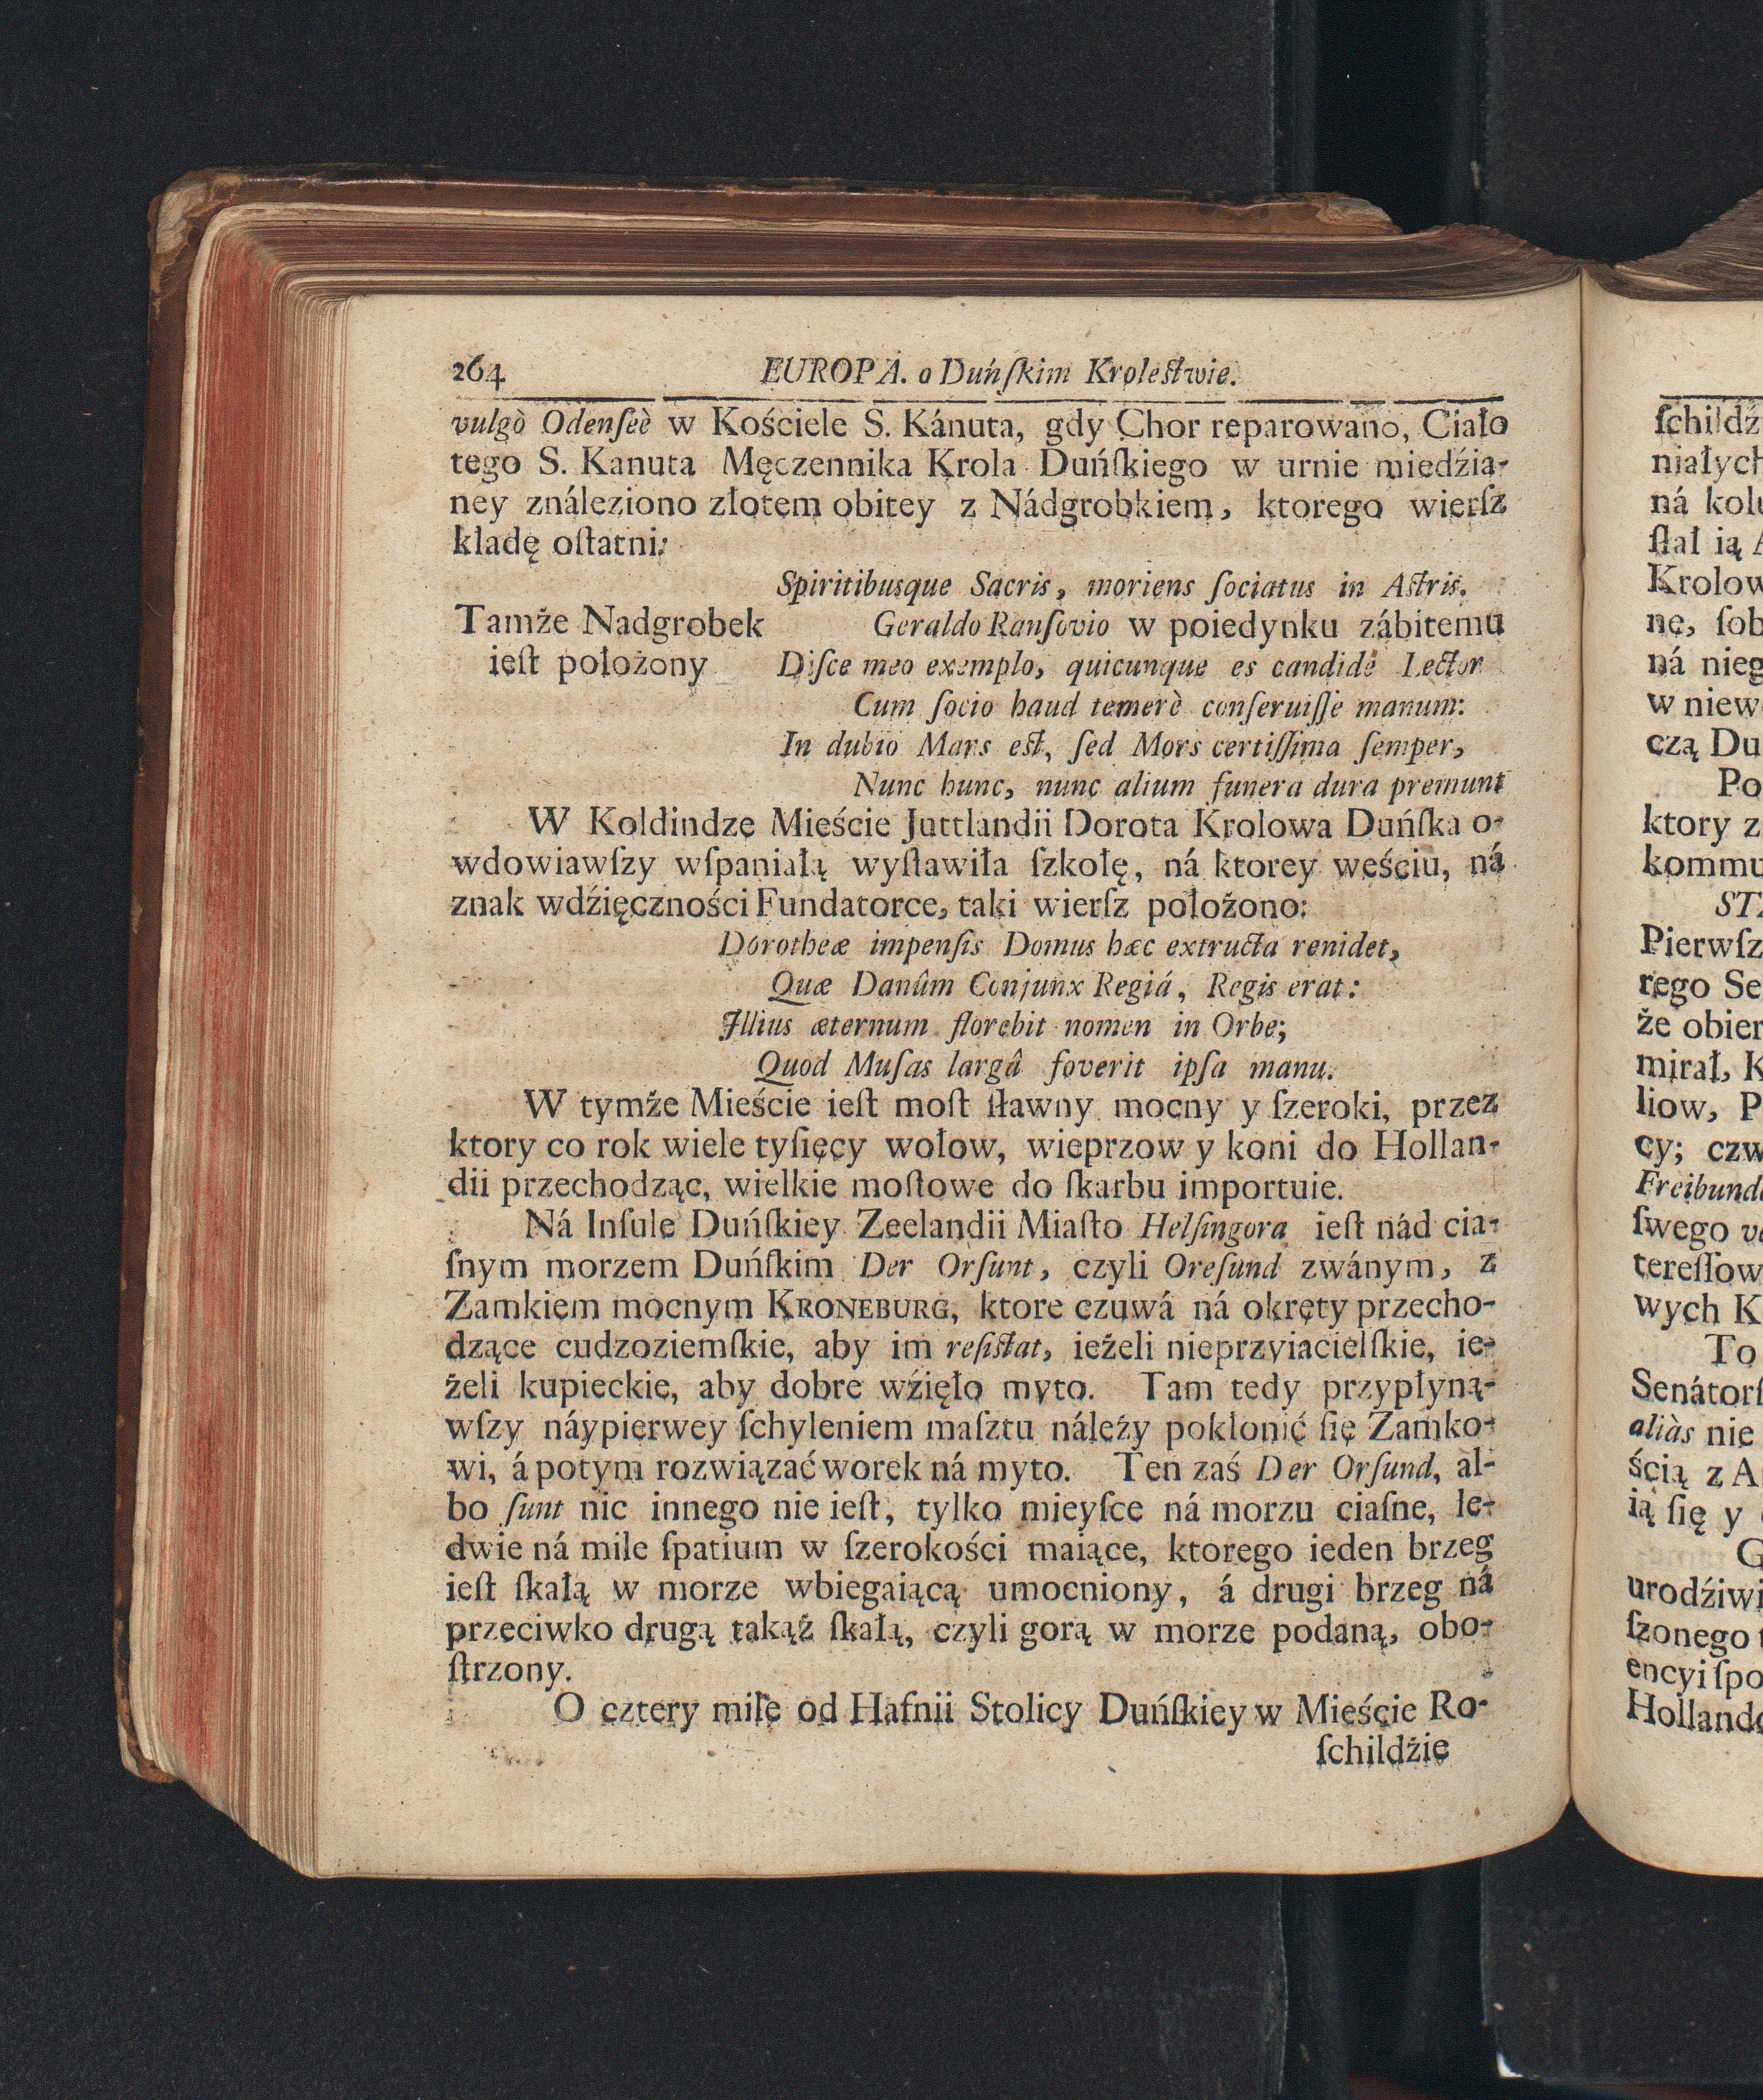 264 EUROPA. o Duńſkim Kroleſtwie.
vulgò Odenſeè w Kościele S. Kánuta, gdy Chor reparowano, Ciało
tego S. Kanuta Męczennika Krola Duńſkiego w urnie miedźia-
ney ználeziono złotem obitey z Nádgrobkiem, ktorego wierſz
kladę oſtatni:
Spiritibusque Sacris, moriens ſociatus in Aſtris.
Tamże Nadgrobek Geraldo Ranſovio w poiedynku zábitemu
ieſt położony Diſce meo exemplo, quicunque es candidè Lector
Cum ſocio haud temerè conſeruiſſe manum:
In dubio Mars eſt, ſed Mors certiſſima ſemper,
Nunc hunc, nunc alium funera dura premunt
W Koldindze Mieście Juttlandii Dorota Krolowa Duńſka o-
wdowiawſzy wſpaniałą wyſtawiła ſzkołę, ná ktorey weściu, ná
znak wdźięczności Fundatorce, taki wierſz położono:
Dorotheæ impenſis Domus hæc extructa renidet,
Quæ Danûm Conjunx Regiá, Regis erat:
Illius æternum florebit nomen in Orbe;
Quod Muſas largâ foverit ipſa manu.
W tymże Mieście ieſt moſt ſławny mocny y ſzeroki, przez
ktory co rok wiele tyſięcy wołow, wieprzow y koni do Hollan-
dii przechodząc, wielkie moſtowe do ſkarbu importuie.
Ná Inſule Duńſkiey Zeelandii Miaſto Helſingora ieſt nád cia-
ſnym morzem Duńſkim Der Orſunt, czyli Oreſund zwánym, z
Zamkiem mocnym KRONEBURG, ktore czuwá ná okręty przecho-
dzące cudzoziemſkie, aby im reſiſtat, ieżeli nieprzyiacielſkie, ie-
żeli kupieckie, aby dobre wźięło myto. Tam tedy przypłyną-
wſzy náypierwey ſchyleniem maſztu náleży pokłonić ſię Zamko-
wi, á potym rozwiązać worek ná myto. Ten zaś Der Orſund, al-
bo ſunt nic innego nie ieſt, tylko mieyſce ná morzu ciaſne, le-
dwie ná mile ſpatium w ſzerokości maiące, ktorego ieden brzeg
ieſt ſkałą w morze wbiegaiącą umocniony, á drugi brzeg ná
przeciwko drugą takąż ſkałą, czyli gorą w morze podaną, obo-
ſtrzony.
O cztery mile od Hafnii Stolicy Duńſkiey w Mieście Ro-
ſchildźie
ſchildź
niałych
ná kolu
ſtał ią
Krolow
ne, ſob
ná nieg
w niew
czą Du
Po
ktory z
kommu
ST
Pierwſz
rego Se
że obier
mirał, K
liow, P
cy; czw
Freibund
ſwego
tereſſow
wych K
To
Senátorſ
aliàs nie
ścią z A
ią ſię y
G
urodźiwi
ſzonego
encyi ſpo
Hollando